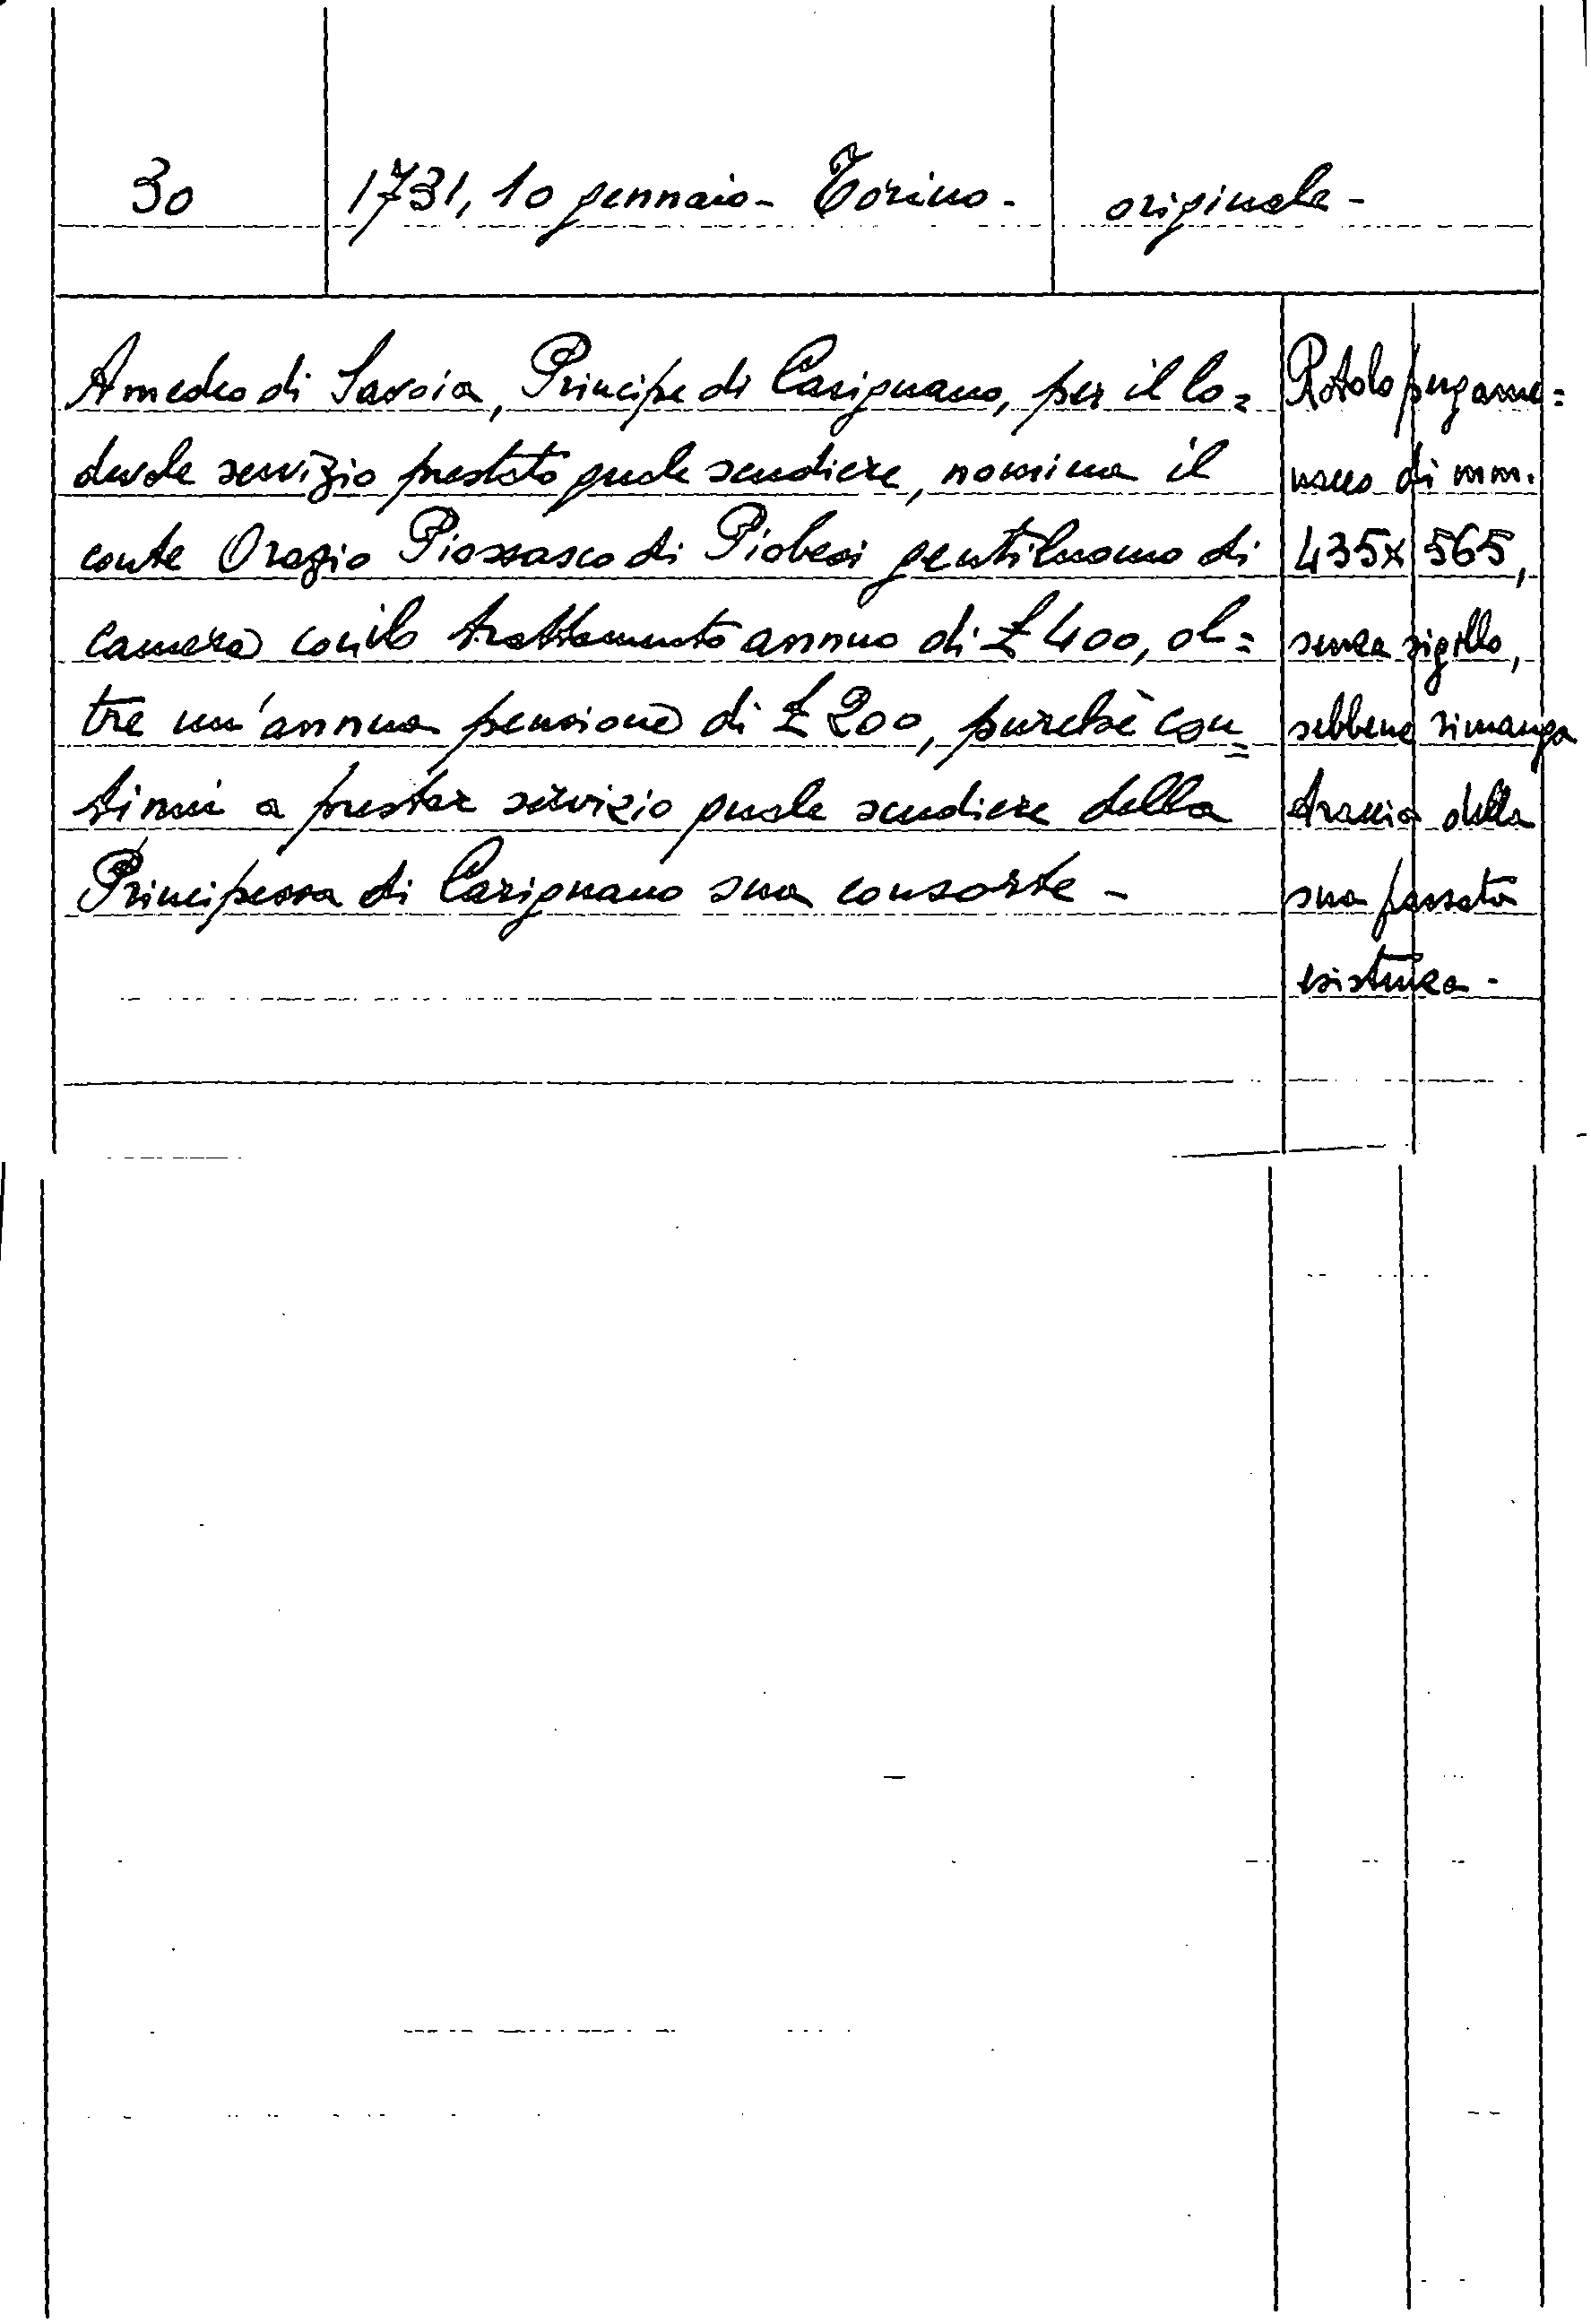 30
1731, 10 gennaio - Torino -
originale -
Amedeo di Savoia, Principe di Carignano, per il lo=
devole servizio prestato quale scudiere, nomina il
conte Orazio Piossasco di Piobesi gentiluomo di
camera con lo trattamento annuo di £ 400, ol=
tre un'annua pensione di £ 200, purchè con=
tinui a prestar servizio quale scudiere della
Principessa di Carignano sua consorte -
Rotolo pergame=
naceo di mm.
435x565,
senza sigillo,
sebbene rimanga
traccia della
sua passata
esistenza -